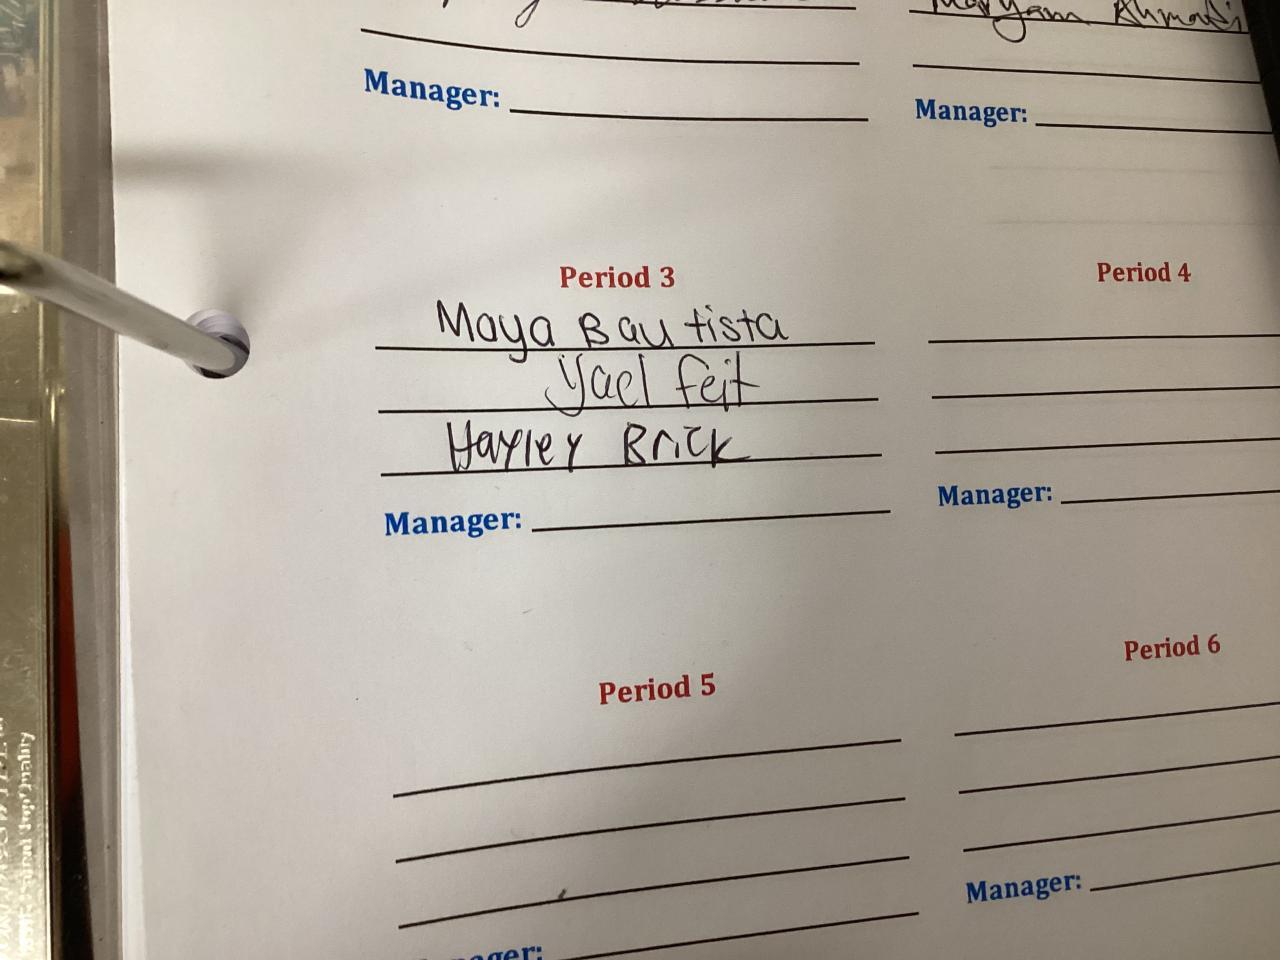 Maryam Ahmadi
Manager:
Manager:
Period 3
Maya Bautista
Yael Feit
Hayley Brick
Manager:
Period 4
Manager:
Period 5
Period 6
Manager: